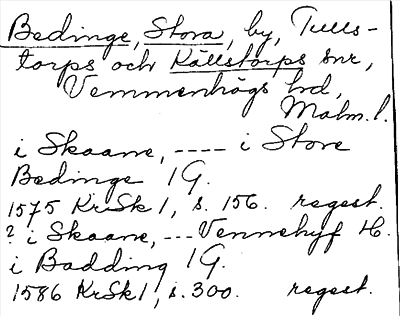 Bedinge, Stora, by, Tulls-
torps och Källstorps snr,
Vemmenhögs hd,
Malm. l.
i Skaane, ---- i Store
Bedinge 1 G.
1575 KrSk 1, s. 156. regest.
? i Skaane, --- Vennehyf H.
i Badding 1 G.
1586 KrSk 1, s. 300. regest.